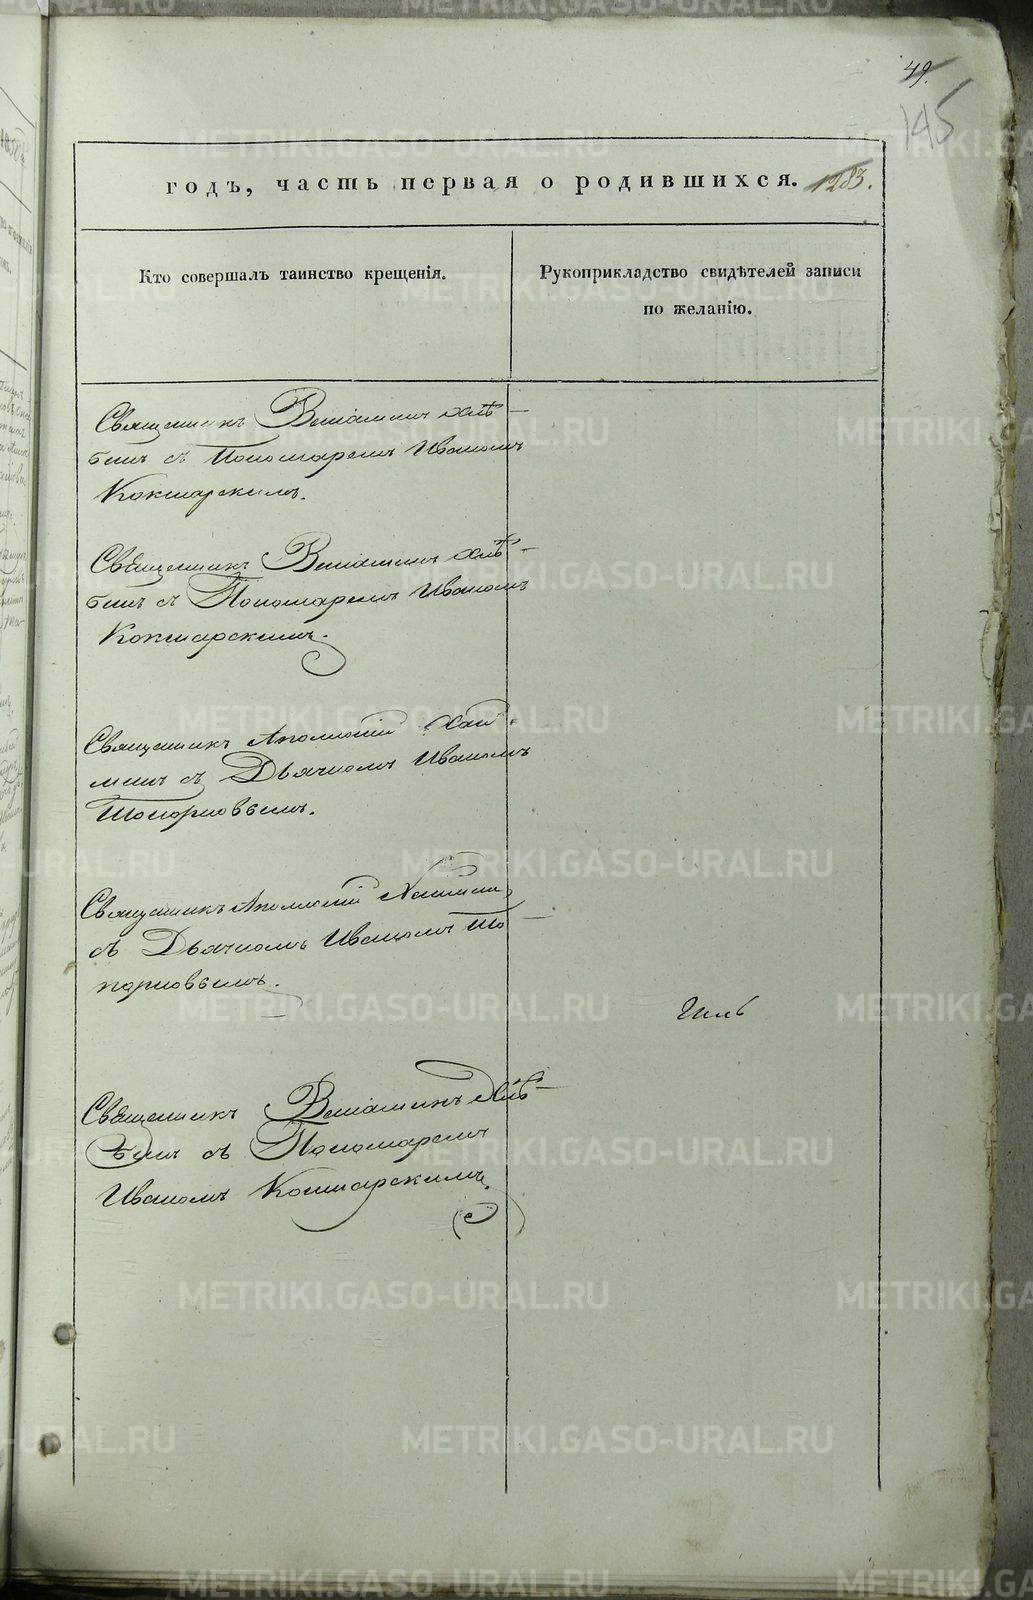 49.
145
годъ, часть первая о родившихся. 1283.
Кто совершалъ таинство крещенія.
Рукоприкладство свидѣтелей записи
по желанію.
Священникъ Веніаминъ Хлѣ-
бинъ съ Пономаремъ Иваномъ
Кокшарскимъ.
Священникъ Веніаминъ Хлѣ-
бинъ съ Пономаремъ Иваномъ
Кокшарскимъ.
Священникъ Аполлоній
съ Дьячкомъ Иваномъ
Топорковымъ.
Священникъ Аполлоній
съ Дьячкомъ Иваномъ То-
порковымъ.
Священникъ Веніаминъ Хлѣ-
бинъ съ Пономаремъ
Иваномъ Кокшарскимъ.
METRIKI.GASO-URAL.RU